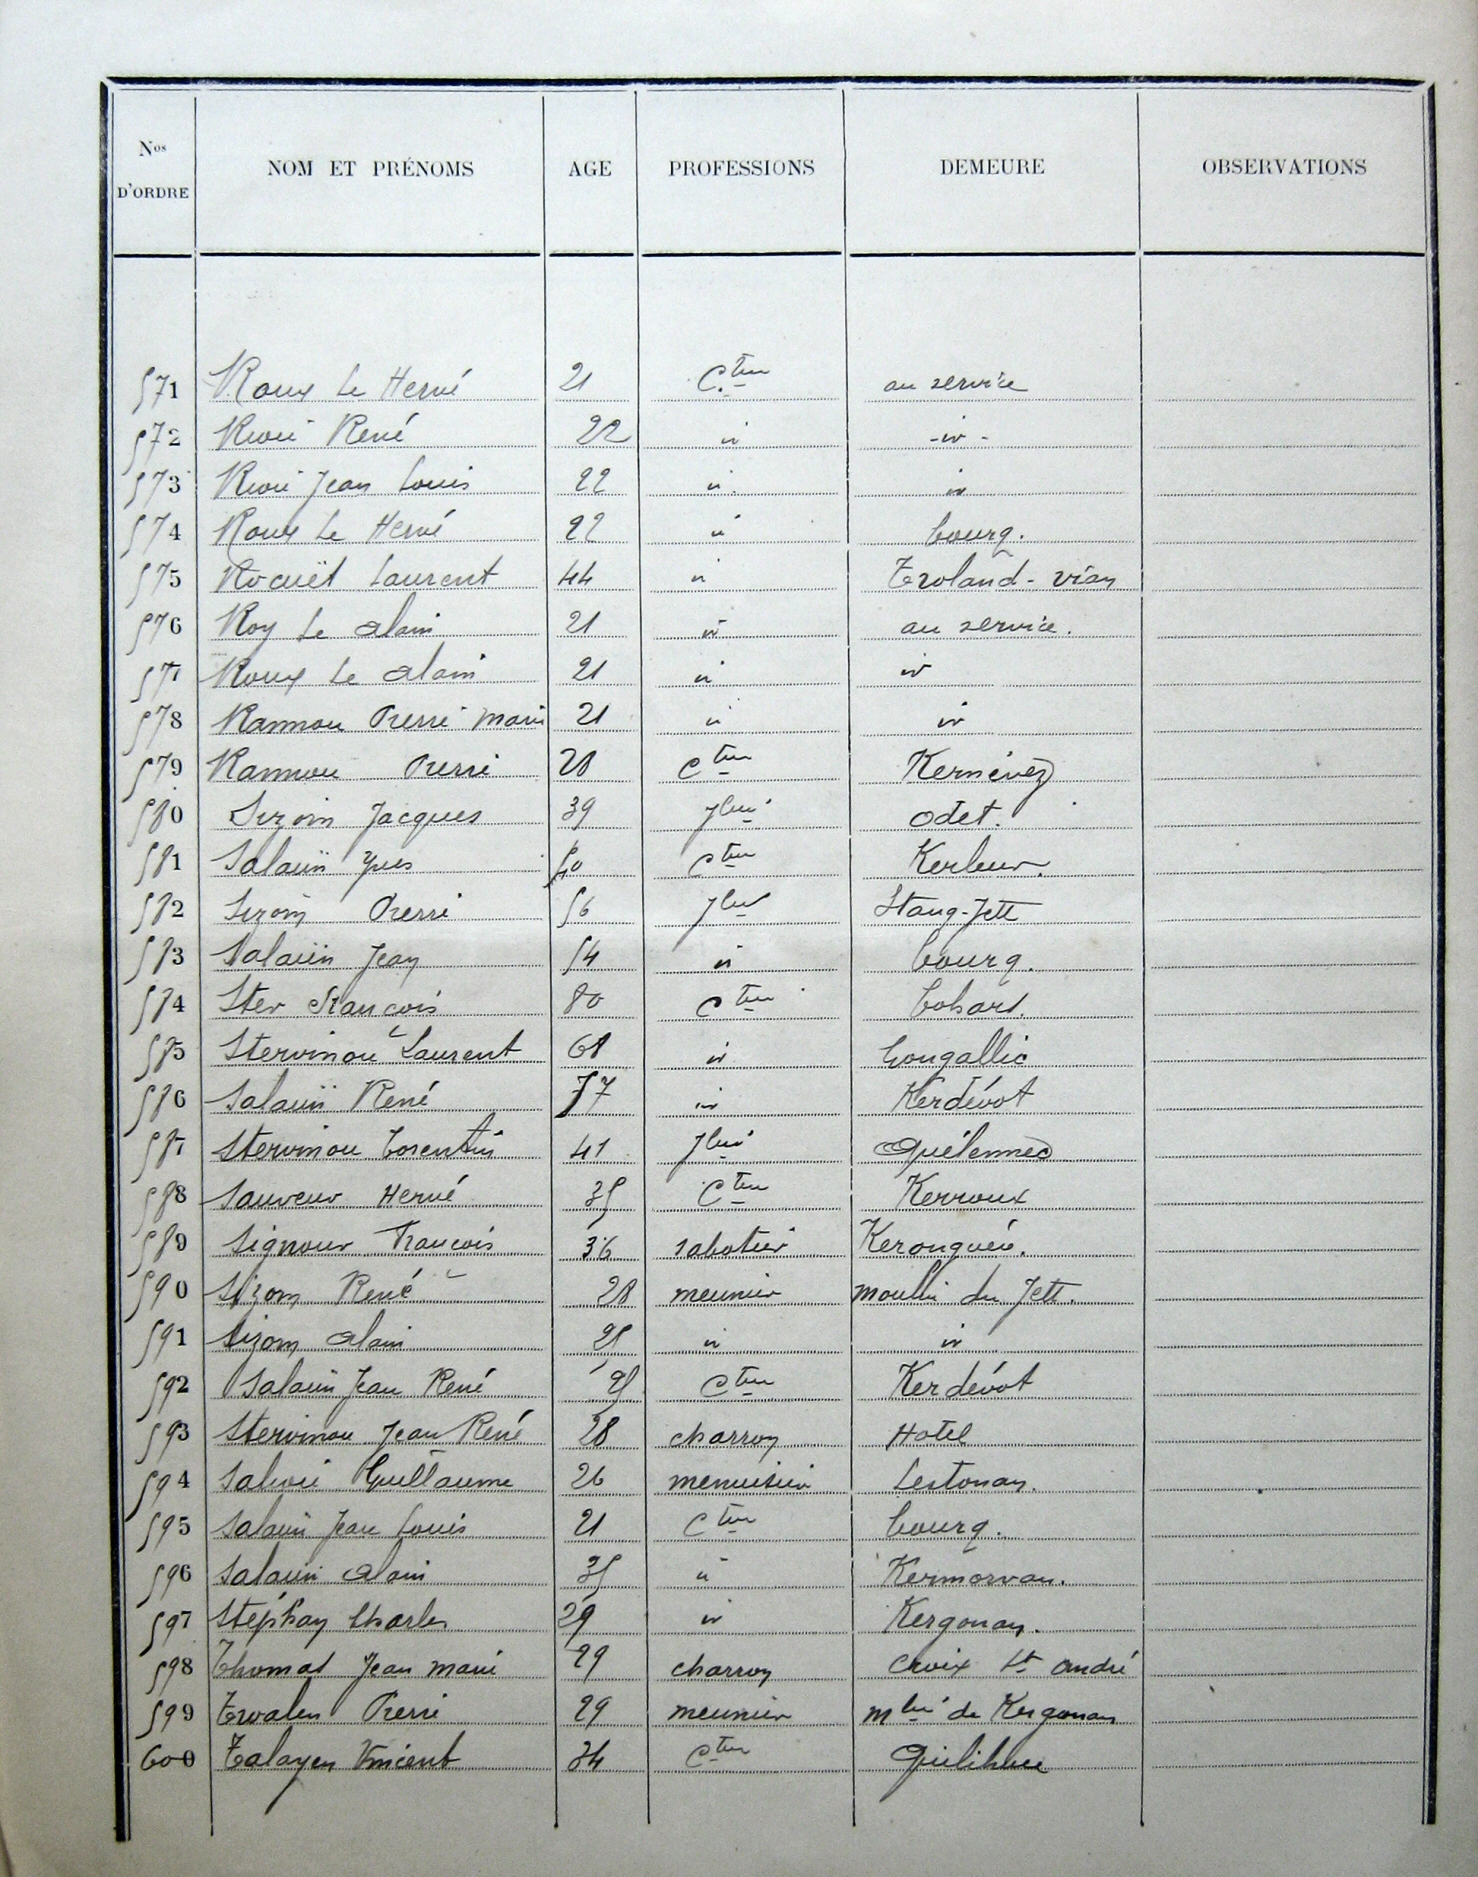 Nos D'ORDRE NOM ET PRÉNOMS AGE PROFESSIONS DEMEURE OBSERVATIONS
571 Roux Le Hervé 21 Cteur au service
572 Riou René 22 id - id -
573 Riou Jean Louis 22 id id
574 Roux Le Hervé 22 id bourg.
575 Rocuët Laurent 44 id Troland-vian
576 Roy Le Alain 21 id au service.
577 Roux Le Alain 21 id id
578 Rannou Pierre Marie 21 id id
579 Rannou Pierre 28 Cteur Kernévez
580 Sizorn Jacques 39 Jlier Odet.
581 Salaün Yves 50 Cteur
582 Sizorn Pierre 56 Jlier Stang-Jett
583 Salaün Jean 54 id bourg.
584 Ster François 80 Cteur
585 Stervinou Laurent 68 id Congallic
586 Salaün René 57 id Kerdévot
587 Stervinou Corentin 41 Jlier Quélennec
588 Sauveur Hervé 35 Cteur Kerroux
589 Signour François 36 sabotier Keronguéo.
590 Sizorn René 28 meunier moulin du Jett.
591 Sizorn Alain 25 id id
592 Salaün Jean René 25 Cteur Kerdévot
593 Stervinou Jean René 28 charron Hotel
594 Guillaume 26 menuisier Lestonan.
595 Salaün Jean Louis 21 Cteur bourg.
596 Salaün Alain 35 id Kermorvan.
597 Stéphan Charles 29 id Kergonan.
598 Thomas Jean Marie 29 charron Croix St André
599 Pierre 29 meunier mlin de Kergonan
600 Talayen Vincent 34 Cteur Quilihuec